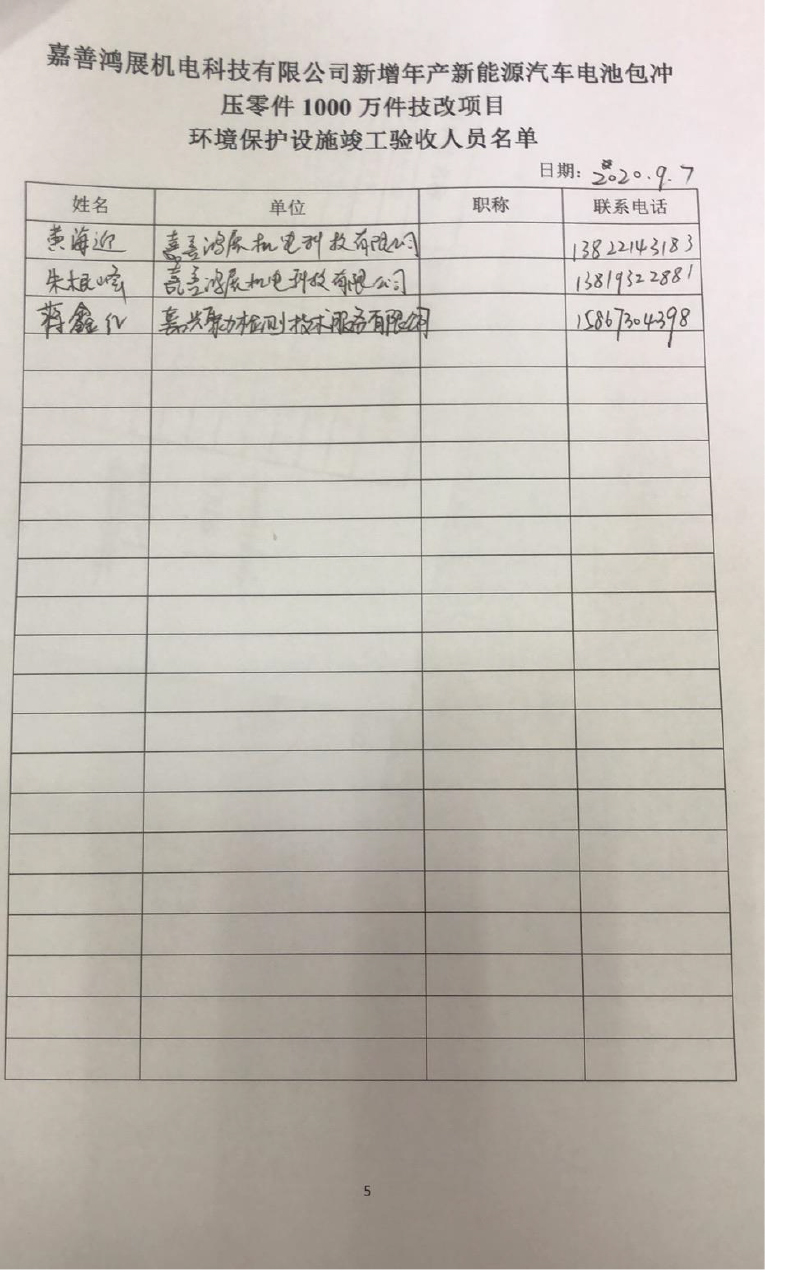 嘉善鸿展机电科技有限公司新增年产新能源汽车电池包冲
压零件 1000 万件技改项目
环境保护设施竣工验收人员名单
日期: 2020.9.7
姓名 单位 职称 联系电话
黄海迎 嘉善鸿展机电科技有限公司 13822143183
朱根 嘉善鸿展机电科技有限公司 13819322881
蒋鑫 嘉兴聚力检测技术服务有限公司 15867304398
5